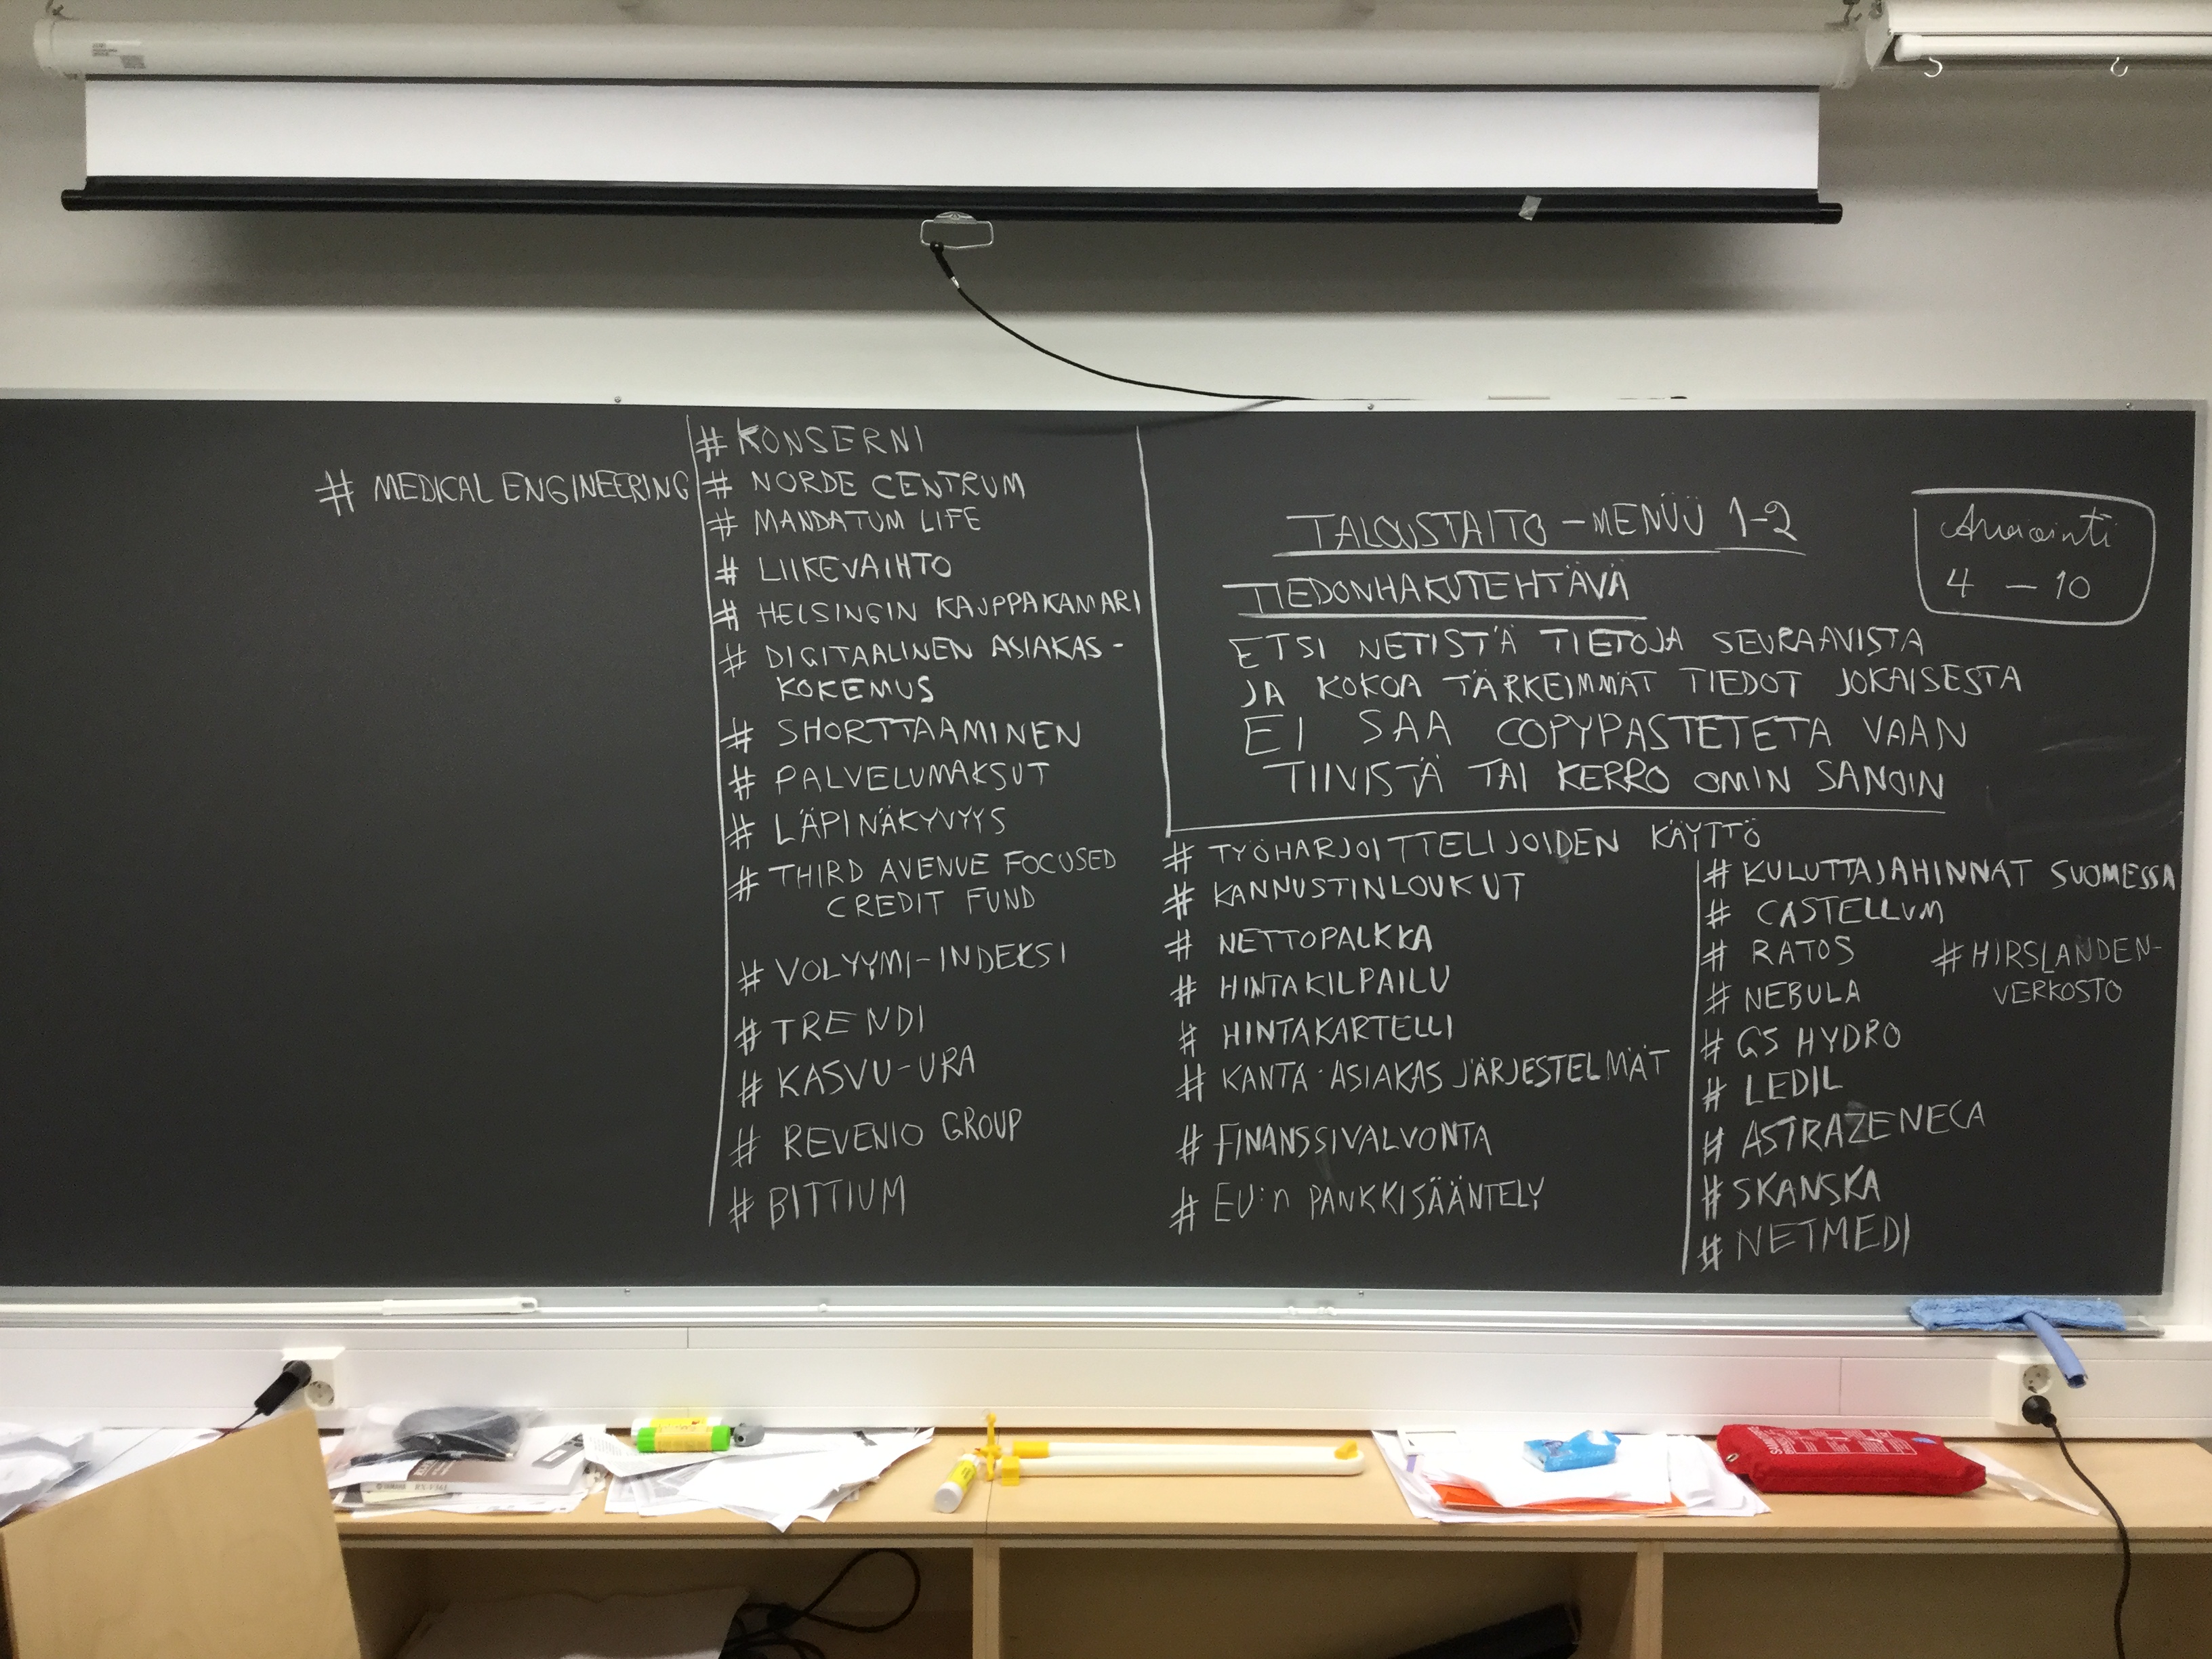 # MEDICAL ENGINEERING
# KONSERNI
# NORDE CENTRUM
# MANDATUM LIFE
# LIIKEVAIHTO
# HELSINGIN KAUPPAKAMARI
# DIGITAALINEN ASIAKAS-
KOKEMUS
# SHORTTAAMINEN
# PALVELUMAKSUT
# LÄPINÄKYVYYS
# THIRD AVENUE FOCUSED
CREDIT FUND
# VOLYYMI-INDEKSI
# TRENDI
# KASVU-URA
# REVENIO GROUP
# BITTIUM
TALOUSTAITO-MENÜÜ 1-2
TIEDONHAKUTEHTÄVÄ
ETSI NETISTÄ TIETOJA SEURAAVISTA
JA KOKOA TÄRKEIMMÄT TIEDOT JOKAISESTA
EI SAA COPYPASTETETA VAAN
TIIVISTÄ TAI KERRO OMIN SANOIN
Arviointi
4 - 10
# TYÖHARJOITTELIJOIDEN KÄYTTÖ
# KANNUSTINLOUKUT
# NETTOPALKKA
# HINTAKILPAILU
# HINTAKARTELLI
# KANTA-ASIAKASJÄRJESTELMÄT
# FINANSSIVALVONTA
# EU:n PANKKISÄÄNTELY
# KULUTTAJAHINNAT SUOMESSA
# CASTELLUM
# RATOS
# NEBULA
# GS HYDRO
# LEDIL
# ASTRAZENECA
# SKANSKA
# NETMEDI
# HIRSLANDEN-
VERKOSTO